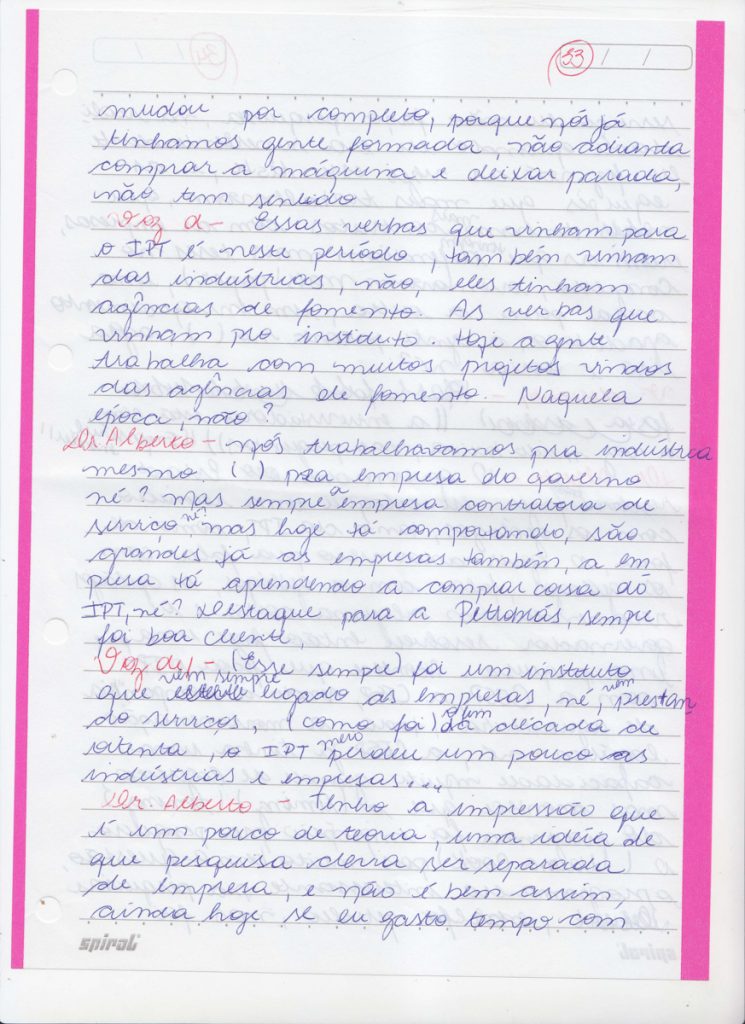 33 / /
mudou por completo, porque nós já
tinhamos gente formada, não adianta
comprar a máquina e deixar parada,
não tem sentido
Voz d - Essas verbas que vinham para
o IPT é neste período, também vinham
das indústrias, não, eles tinham
agências de fomento. As verbas que
vinham pro instituto. Hoje a gente
trabalha com muitos projetos vindos
das agências de fomento. - Naquela
época, não?
Dr Alberto - nós trabalhavamos pra indústria
mesmo. ( ) pra empresa do governo
né? mas sempre a empresa contratora de
serviço né? mas hoje tá comportando, são
grandes já as empresas também, a em
presa tá aprendendo a comprar coisa do
IPT, né? Destaque para a Petrobrás, sempre
foi boa cliente,
Voz de - (Esse sempre) foi um instituto
que vem sempre ligado as empresas, né, vem prestan
do serviços, (como foi) da década de
oitenta, o IPT meio perdeu um pouco as
indústrias e empresas...
Dr Alberto - Tenho a impressão que
é um pouco de teoria, uma idéia de
que pesquisa deva ser separada
de empresa, e não é bem assim,
ainda hoje se eu gasto tempo com
spiral